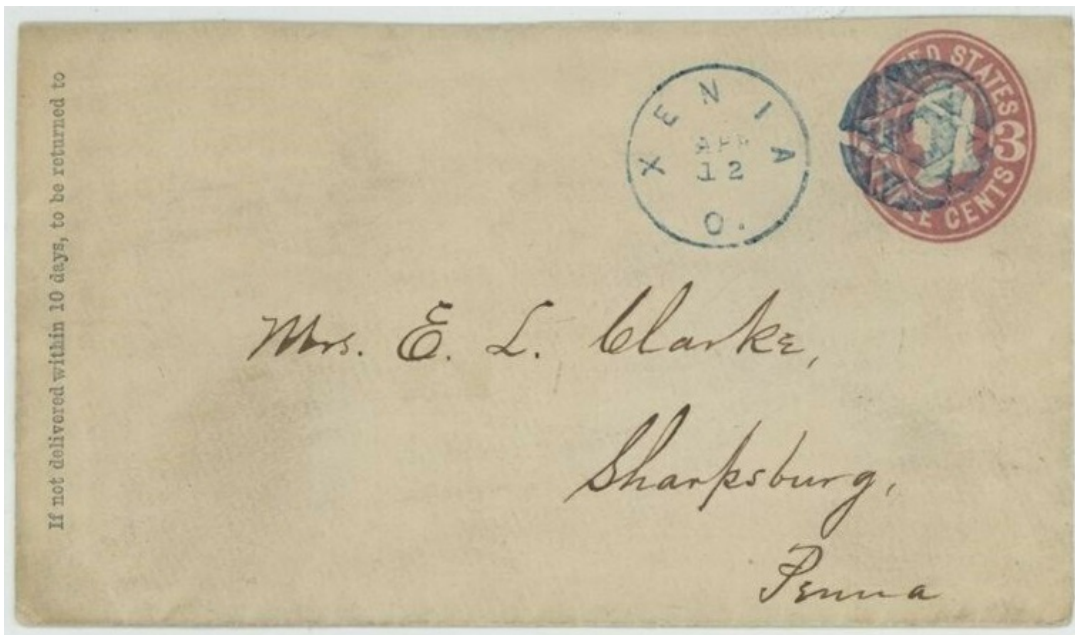 If not delivered within 10 days, to be returned to
XENIA
APR
12
O.
UNITED STATES
3
THREE CENTS
Mrs. E. L. Clarke,
Sharpsburg,
Penna